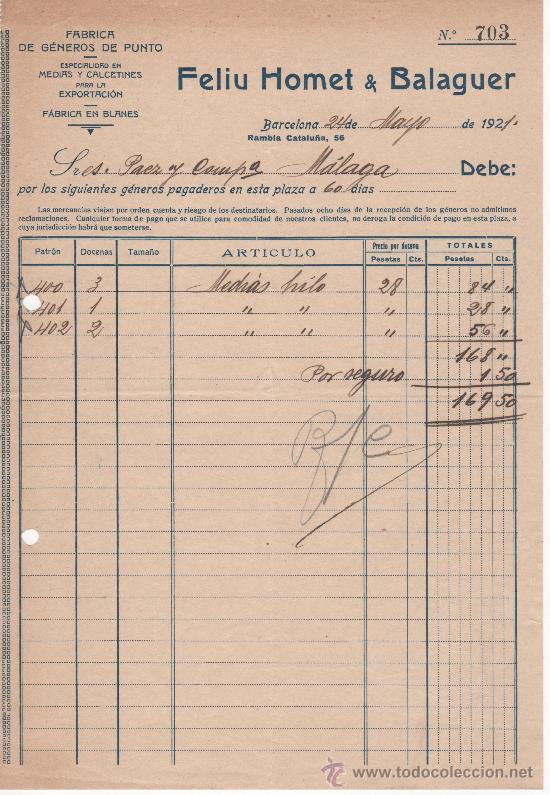 FABRICA
DE GÉNEROS DE PUNTO
ESPECIALIDAD EN
MEDIAS Y CALCETINES
PARA LA
EXPORTACIÓN
FÁBRICA EN BLANES
N.º 703
Feliu Homet & Balaguer
Barcelona 24 de Mayo de 1921.
Rambla Cataluña, 56
Sres. Paez y Compª Málaga Debe:
por los siguientes géneros pagaderos en esta plaza a 60 días
Las mercancías viajan por orden cuenta y riesgo de los destinatarios. Pasados ocho días de la recepción de los géneros no admitimos
reclamaciones. Cualquier forma de pago que se utilice para comodidad de nuestros clientes, no deroga la condición de pago en esta plaza, a
cuya jurisdicción habrá que someterse.
Patrón Docenas Tamaño ARTICULO Precio por docena Pesetas Cts. TOTALES Pesetas Cts.
400 3 Medias hilo 28 84 "
401 1 " " " 28 "
402 2 " " " 56 "
168 "
Por seguro 1 50
169 50
todocoleccion
www.todocoleccion.net